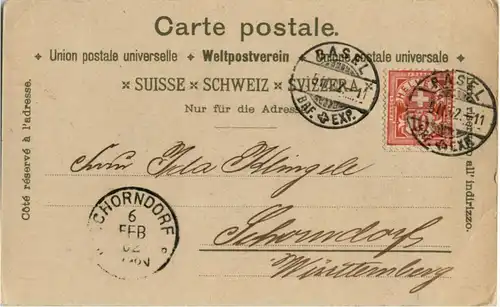 Carte postale.
Union postale universelle Weltpostverein Unione postale universale
SUISSE SCHWEIZ SVIZZERA
Nur für die Adresse
Côté réservé à l'adresse.
all' indirizzo.
BASEL
BRF. EXP.
BASEL
BRF. EXP.
HELVETIA
10
SCHORNDORF
6
FEB
02
Schorndorf
Württemberg